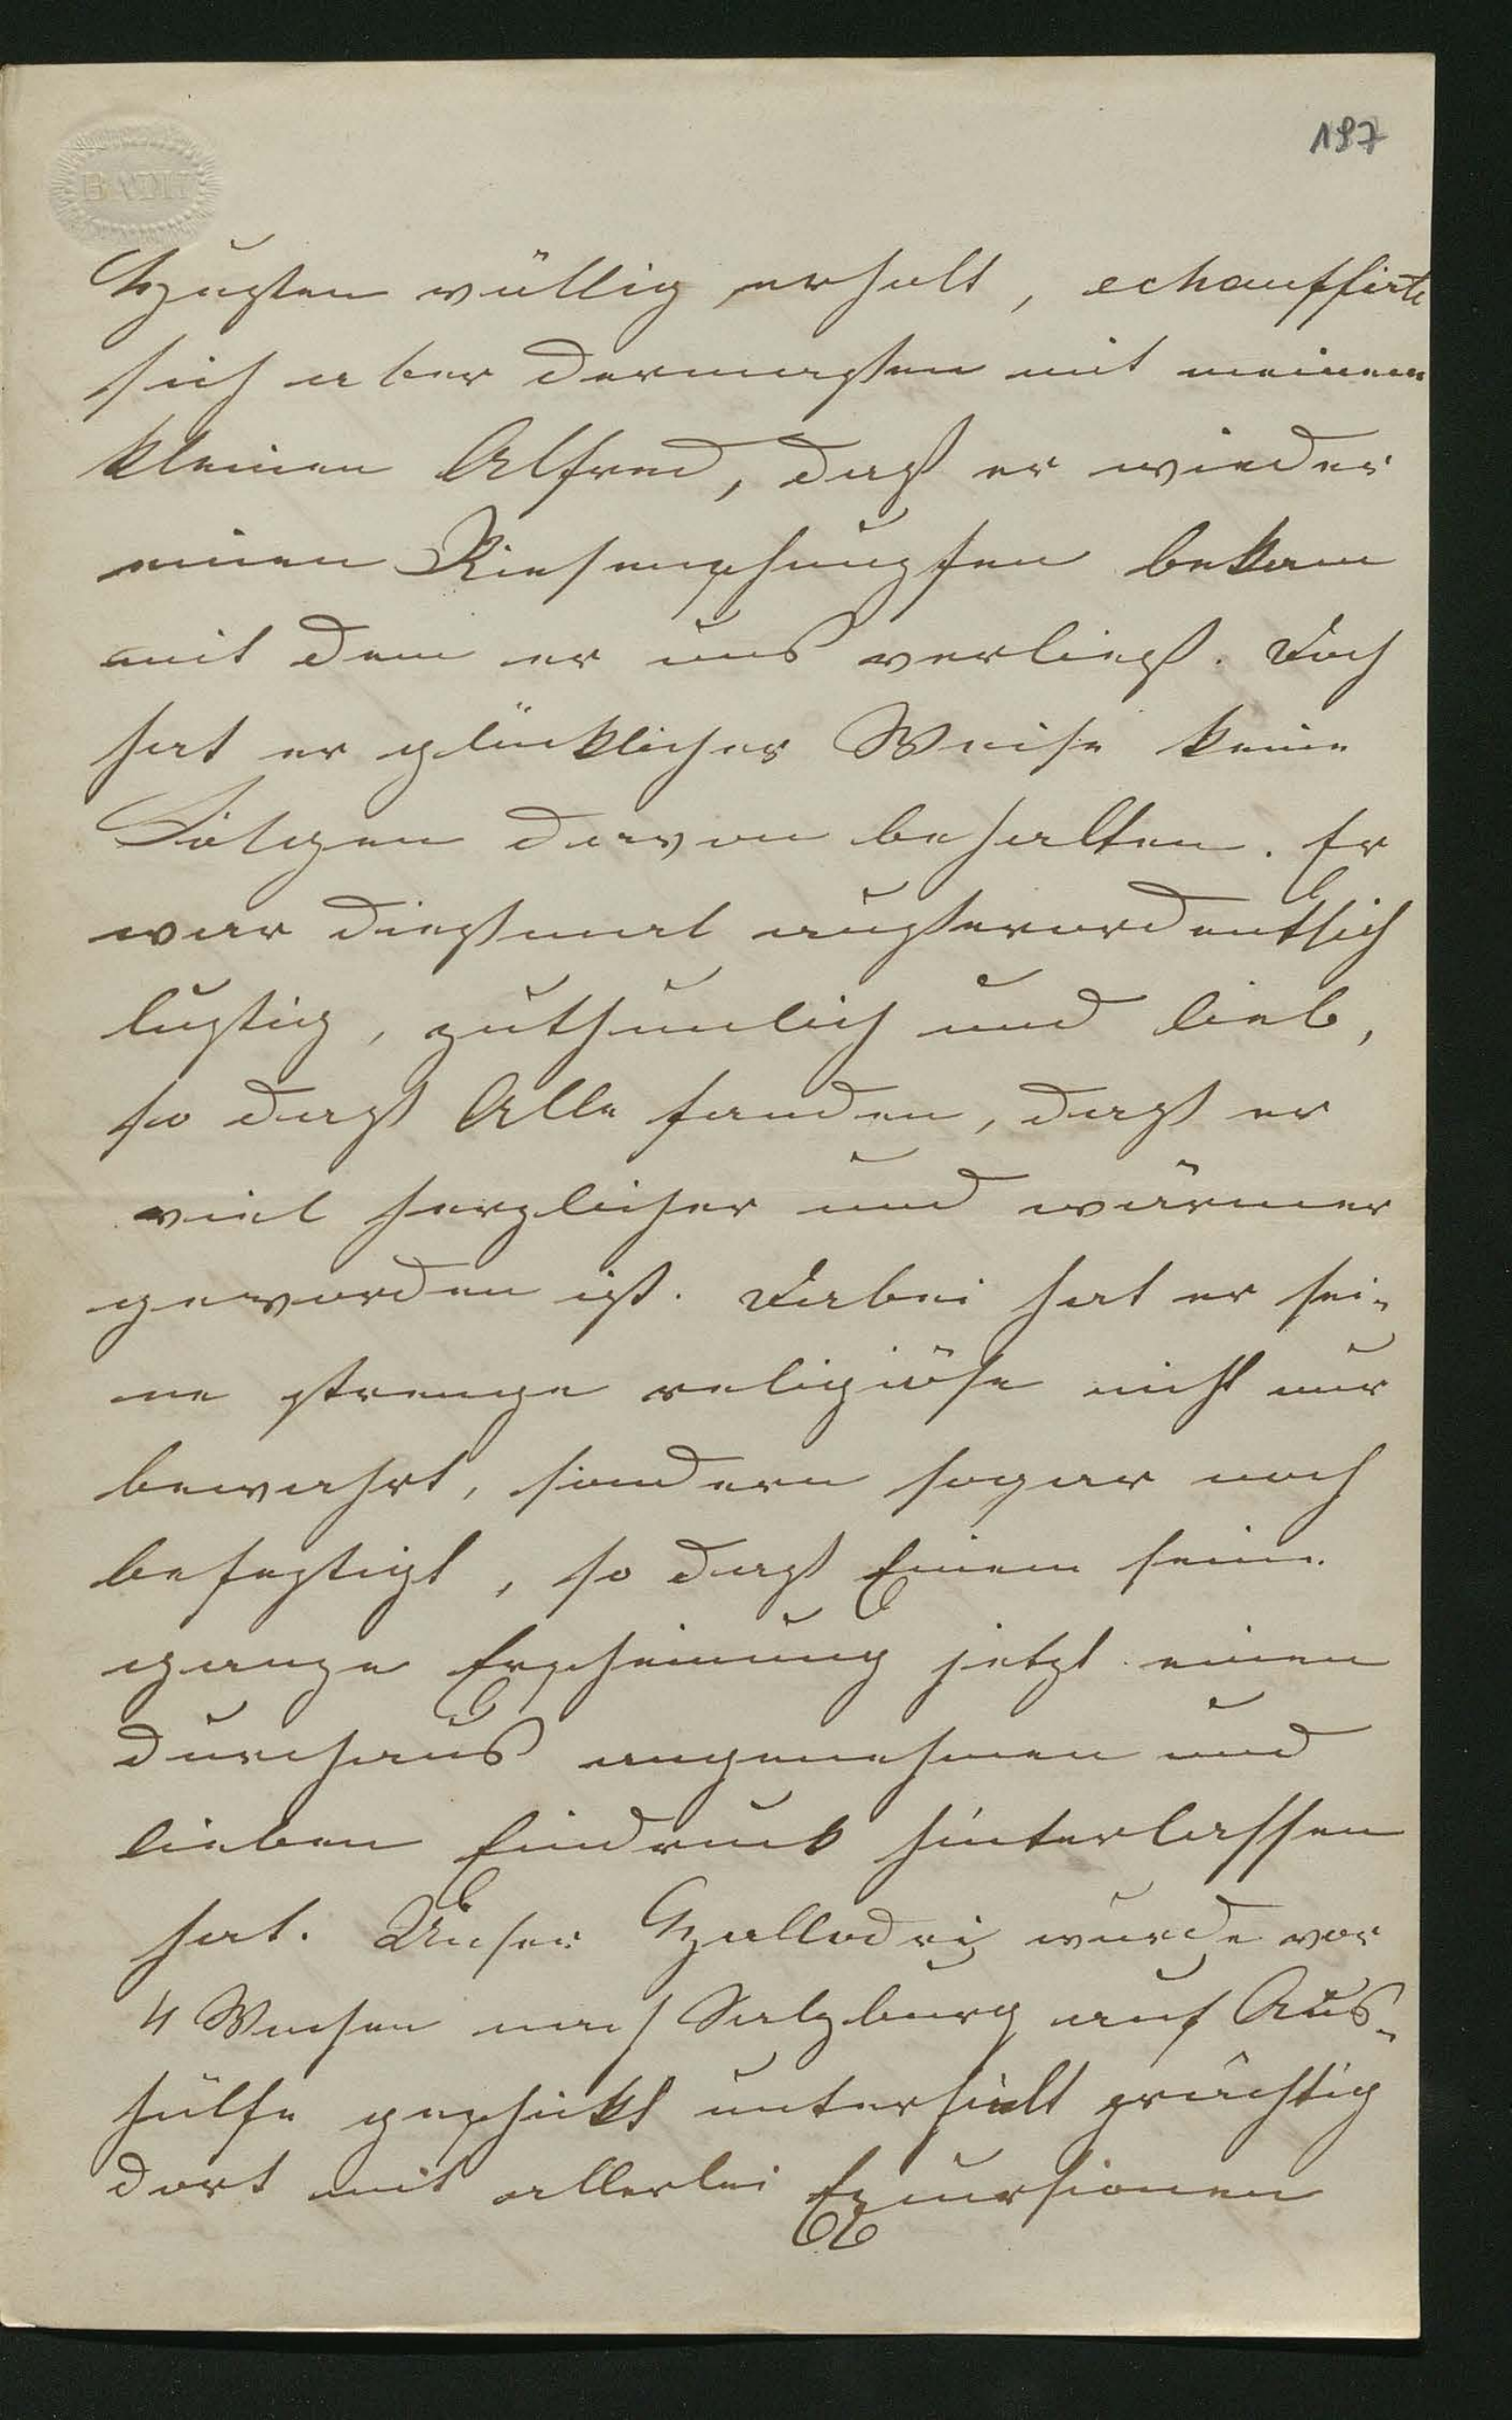 197
BATH
Husten völlig erholt, echauffirte
sich aber dermaßen mit meinem
kleinen Alfred, daß er wieder
einen Riesenschnupfen bekam
mit dem er uns verließ. Doch
hat er glücklicher Weise keine
Folgen davon behalten. Er
war dießmal außerordentlich
lustig, zuthunlich und lieb,
so daß Alle fanden, daß er
viel herzlicher und wärmer
geworden ist. Dabei hat er sei-
ne strenge religiöse nicht nur
bewahrt, sondern sogar noch
befestigt, so daß Einem seine
ganze Erscheinung jetzt einen
durchaus angenehmen und
lieben Eindruck hinterlassen
hat. Unser wurde vor
4 Wochen nach Salzburg auf Aus-
hülfe geschickt unterhielt prächtig
dort mit allerlei Excursionen